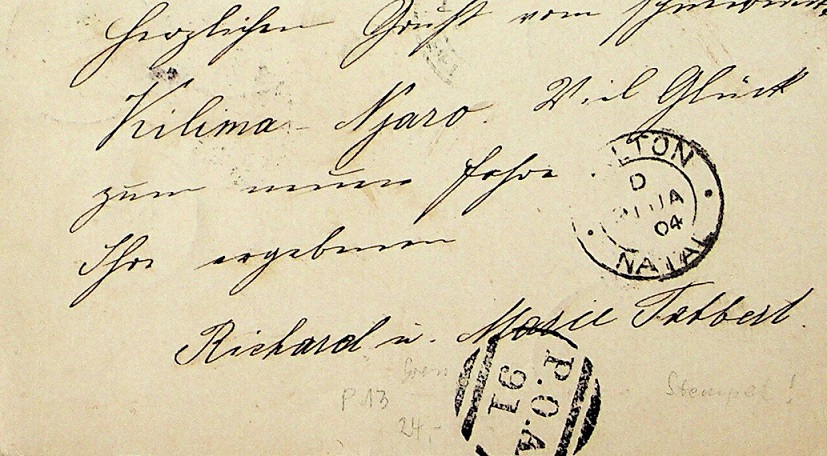 Herzlichen Gruß vom
Kilima-Njaro. Viel Glück
zum neuen Jahre
Ihre ergebenen
Richard u. Marie
LTON
D
JA
04
NATAL
P.O.A
91
P 13
24,-
Stempel!